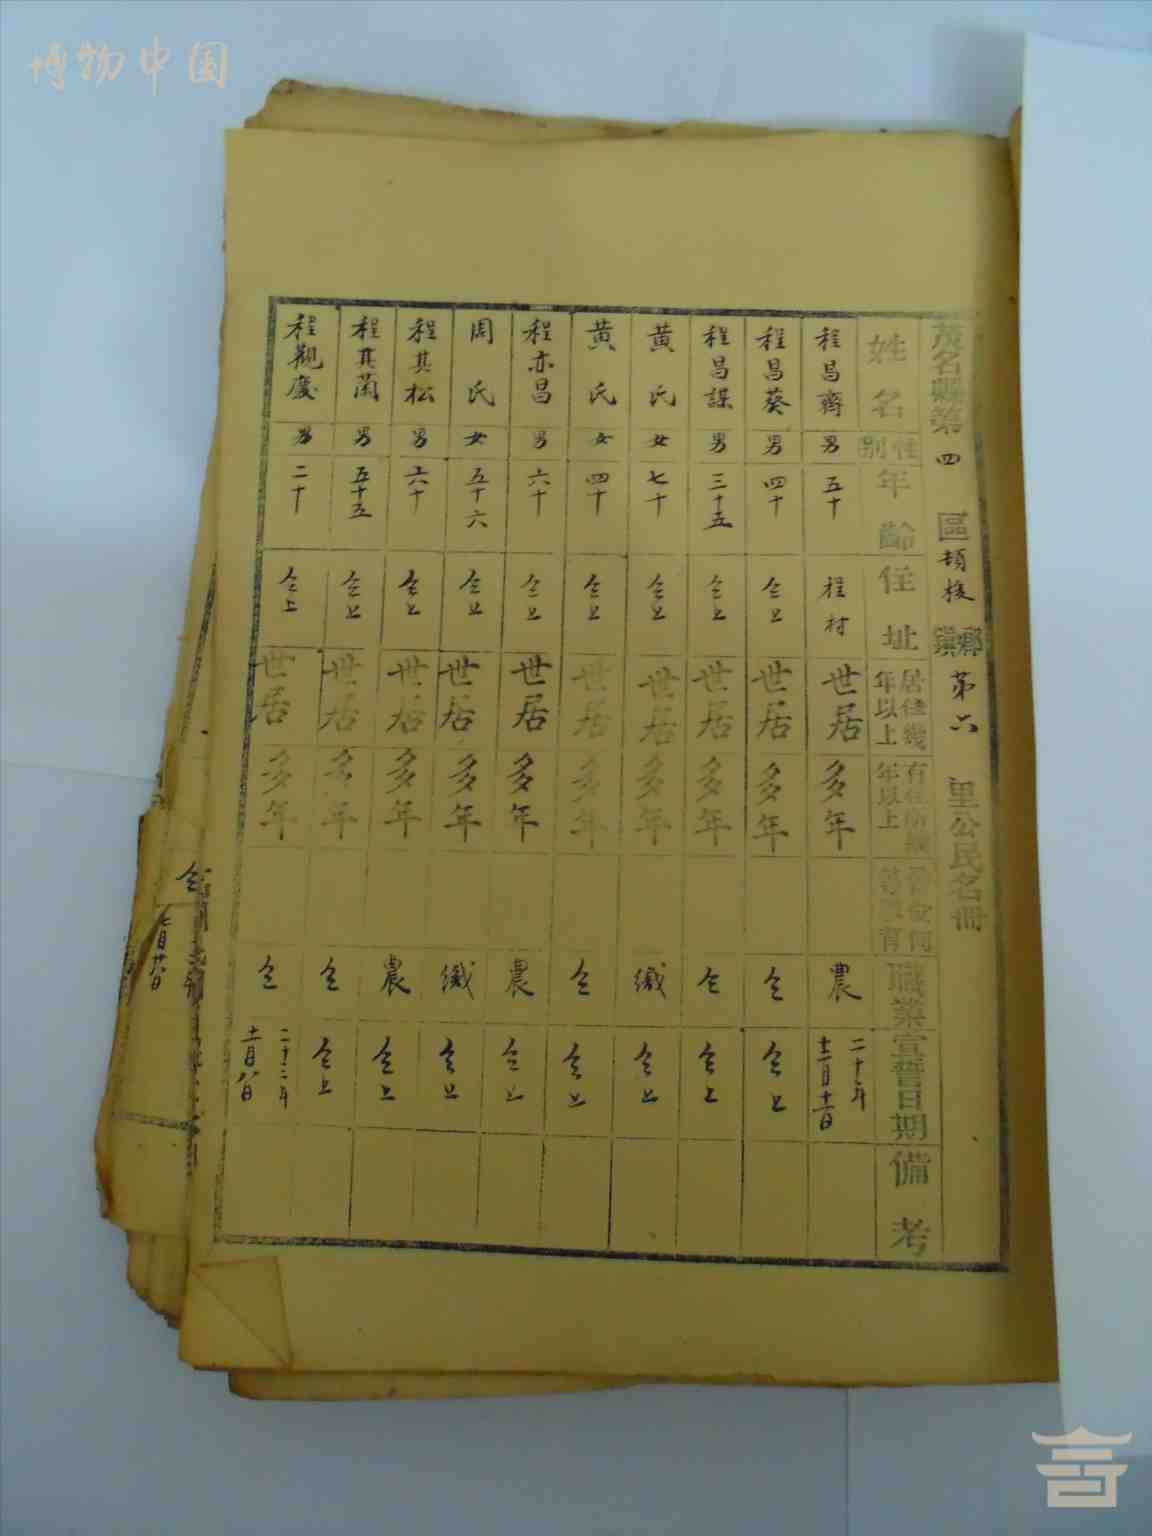 博物中国
茂名縣第四區頡梭鄉鎮第六里公民名冊
姓名 性別 年齡 住址 居住幾年以上 有住所幾年以上 職業 宣誓日期 備考
程昌齊 男 五十 程村 世居 多年 農 二十二年十二月十三日
程昌葵 男 四十 仝上 世居 多年 仝 仝上
程昌謀 男 三十五 仝上 世居 多年 仝 仝上
黃氏 女 七十 仝上 世居 多年 織 仝上
黃氏 女 四十 仝上 世居 多年 仝 仝上
程亦昌 男 六十 仝上 世居 多年 農 仝上
周氏 女 五十六 仝上 世居 多年 織 仝上
程其松 男 六十 仝上 世居 多年 農 仝上
程其蘭 男 五十五 仝上 世居 多年 仝 仝上
程觀慶 男 二十 仝上 世居 多年 仝 二十二年十二月八日
仝
七月廿八日